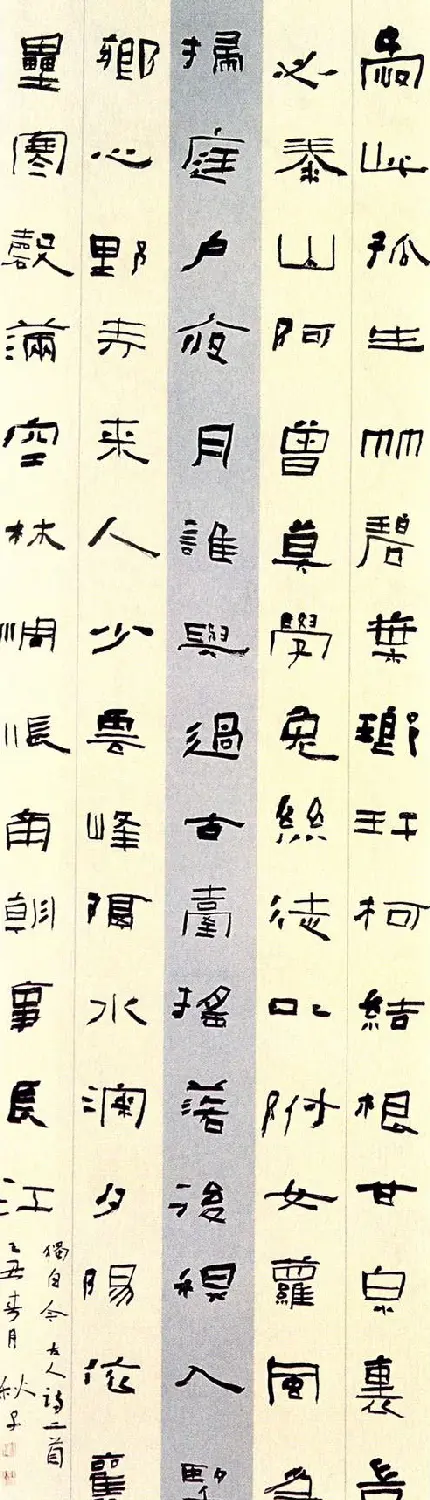 此孤生竹碧葉瑯玕柯結根甘泉裏豈
必泰山阿曾莫學兔絲徒以附女蘿風為
掃庭戶夜月誰與過古臺搖落後秋入望
鄉心野寺來人少雲峰隔水深夕陽依舊
壘寒磬滿空林惆悵南朝事長江
獨自今 古人詩二首
乙丑春月 秋子